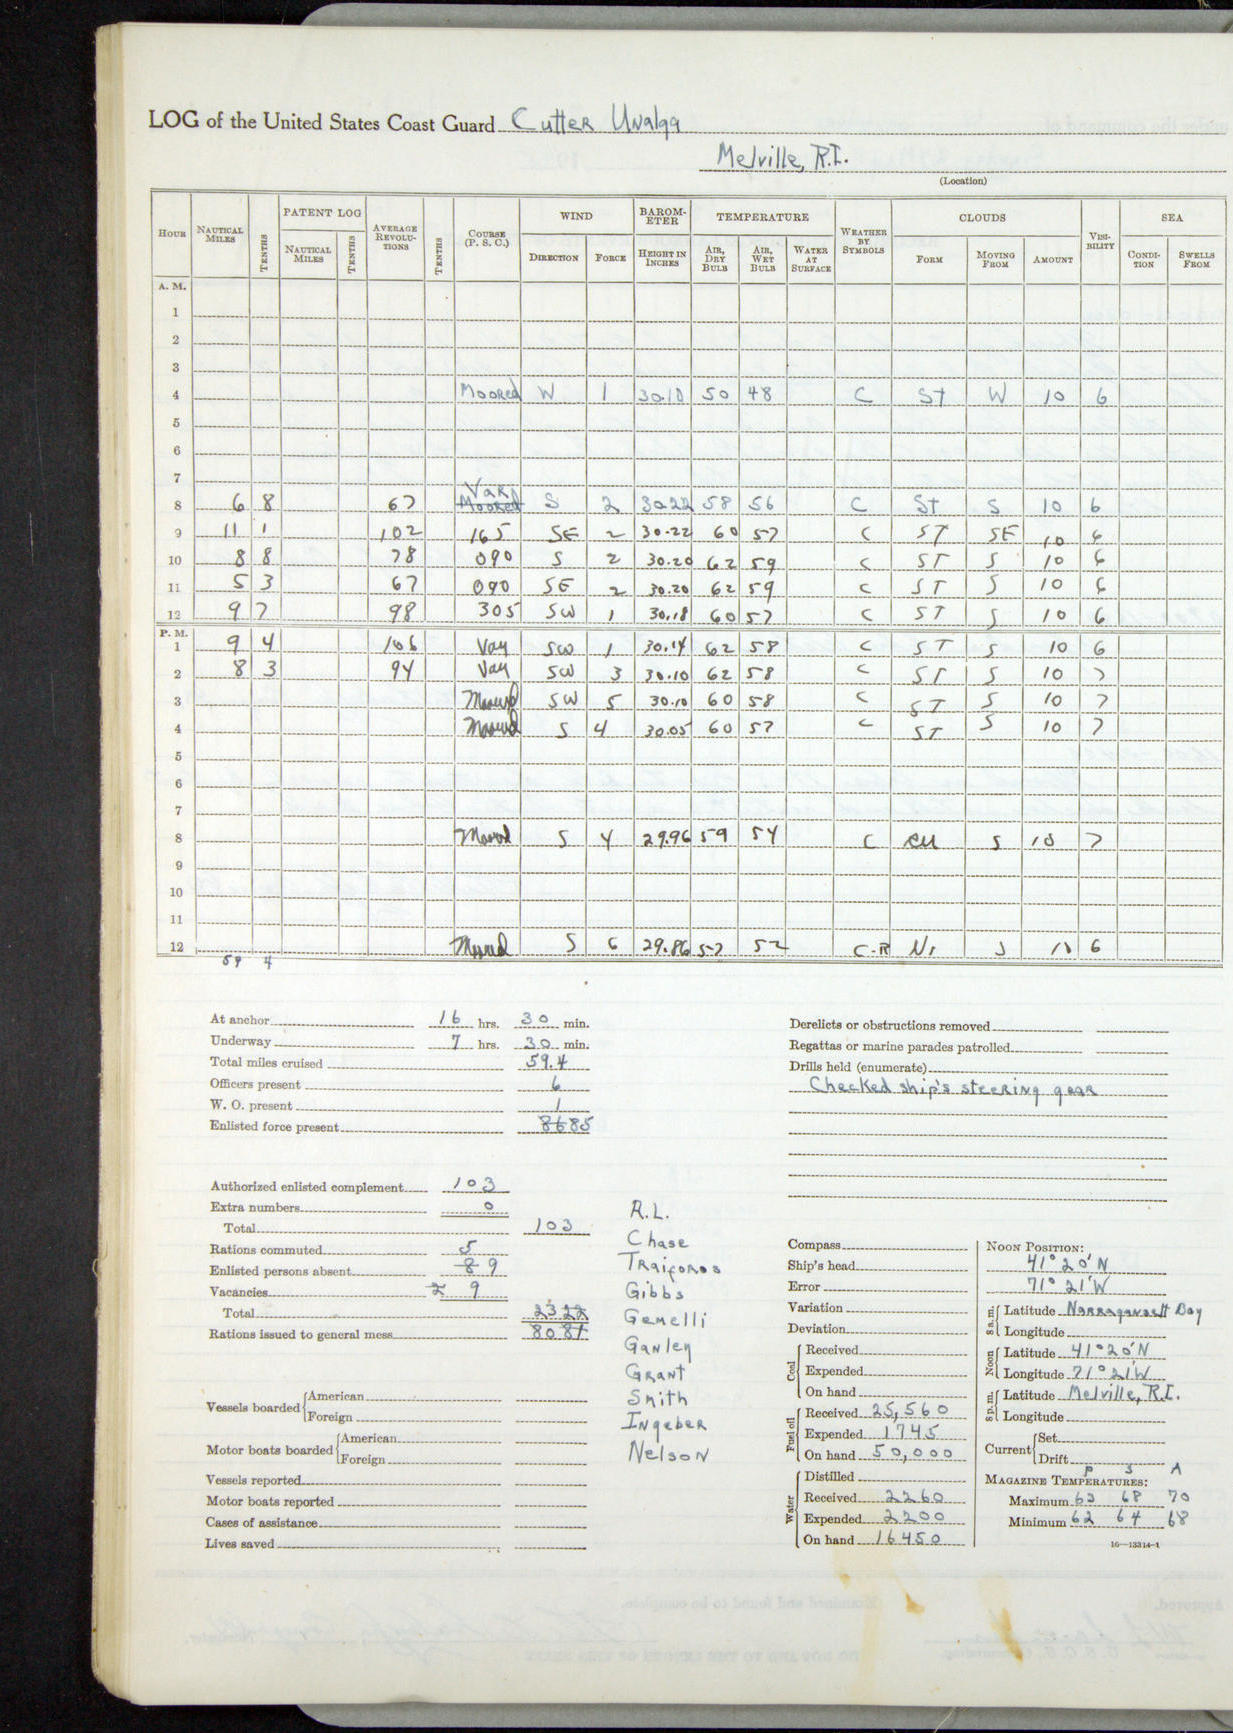 LOG of the United States Coast Guard Cutter Unalga
Melville, R.I.
(Location)
HOUR NAUTICAL MILES TENTHS PATENT LOG NAUTICAL MILES TENTHS AVERAGE REVOLUTIONS TENTHS COURSE (P. S. C.) WIND DIRECTION FORCE BAROMETER HEIGHT IN INCHES TEMPERATURE AIR, DRY BULB AIR, WET BULB WATER AT SURFACE WEATHER BY SYMBOLS CLOUDS FORM MOVING FROM AMOUNT VISIBILITY SEA CONDITION SWELLS FROM
A. M.
1
2
3
4 Moored W 1 30.10 50 48 C St W 10 6
5
6
7
8 6 8 67 Var Moored S 2 30.22 58 56 C St S 10 6
9 11 1 102 165 SE 2 30.22 60 57 C ST SE 10 6
10 8 8 78 090 S 2 30.20 62 59 C ST S 10 6
11 5 3 67 090 SE 2 30.20 62 59 C ST S 10 6
12 9 7 98 305 SW 1 30.18 60 57 C ST S 10 6
P. M.
1 9 4 106 Var SW 1 30.14 62 58 C ST S 10 6
2 8 3 94 Var SW 3 30.10 62 58 C ST S 10 7
3 Moored SW 5 30.10 60 58 C ST S 10 7
4 Moored S 4 30.05 60 57 C ST S 10 7
5
6
7
8 Moored S 4 29.96 59 54 C cu S 10 7
9
10
11
12 Moored S 6 29.86 57 52 C-R Ni S 10 6
59 4
At anchor 16 hrs. 30 min.
Underway 7 hrs. 30 min.
Total miles cruised 59.4
Officers present 6
W. O. present 1
Enlisted force present 86 85
Authorized enlisted complement 103
Extra numbers 0
Total 103
Rations commuted 5
Enlisted persons absent 8 9
Vacancies 2 9
Total 23 22
Rations issued to general mess 80 81
Vessels boarded American
Foreign
Motor boats boarded American
Foreign
Vessels reported
Motor boats reported
Cases of assistance
Lives saved
R.L.
Chase
Traiforos
Gibbs
Gemelli
Ganley
Grant
Smith
Ingeber
Nelson
Derelicts or obstructions removed
Regattas or marine parades patrolled
Drills held (enumerate)
Checked ship's steering gear
Compass
Ship's head
Error
Variation
Deviation
Coal Received
Expended
On hand
Fuel oil Received 25,560
Expended 1745
On hand 50,000
Water Distilled
Received 2260
Expended 2200
On hand 16450
NOON POSITION:
41° 20' N
71° 21' W
8 a.m. Latitude Narragansett Bay
Longitude
Noon Latitude 41° 20' N
Longitude 71° 21' W
8 p.m. Latitude Melville, R.I.
Longitude
Current Set
Drift
P S A
MAGAZINE TEMPERATURES:
Maximum 63 68 70
Minimum 62 64 68
16—13314-1